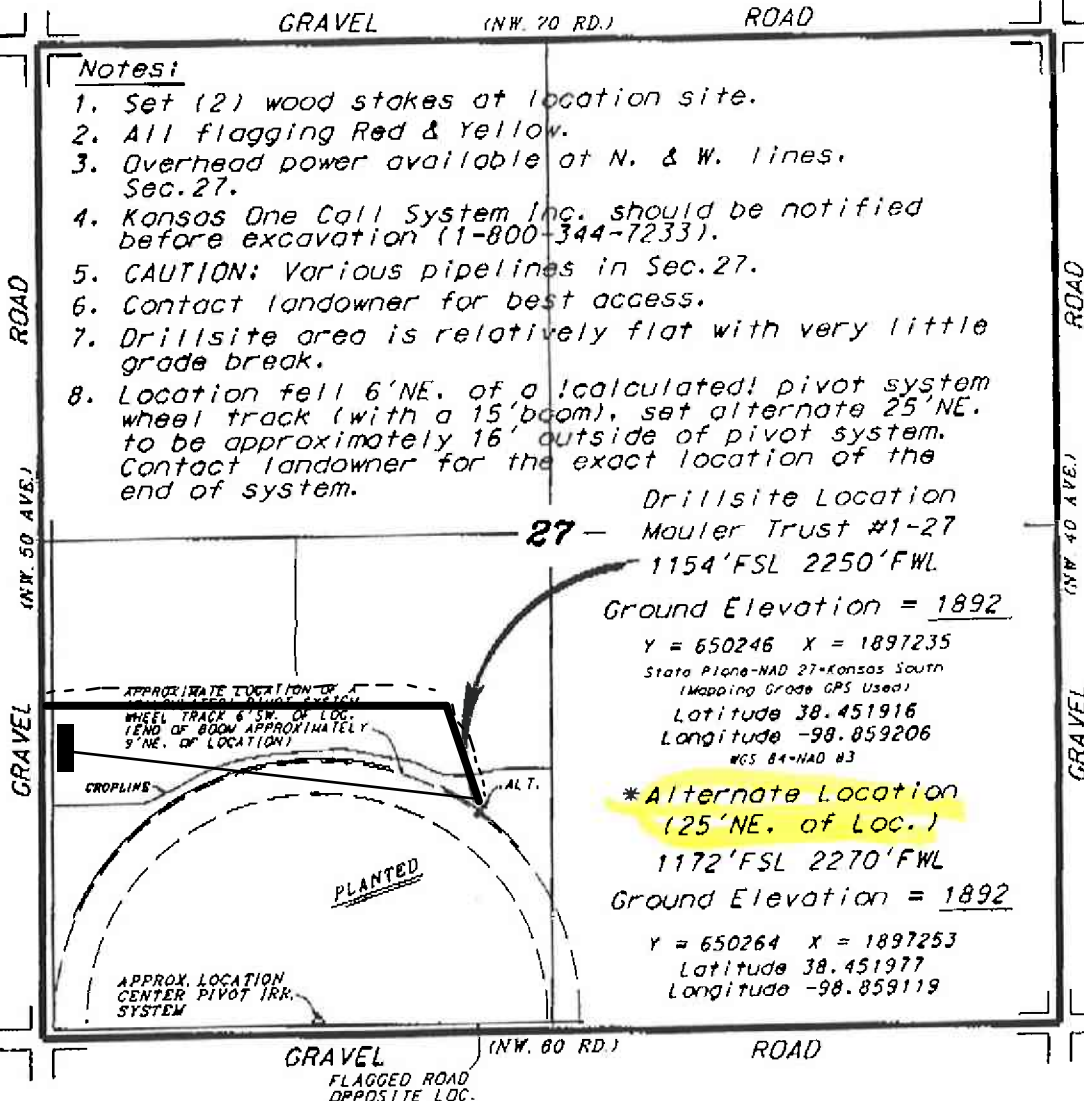 GRAVEL (NW. 70 RD.) ROAD
Notes:
1. Set (2) wood stakes at location site.
2. All flagging Red & Yellow.
3. Overhead power available at N. & W. lines.
Sec. 27.
4. Kansas One Call System Inc. should be notified
before excavation (1-800-344-7233).
5. CAUTION: Various pipelines in Sec. 27.
6. Contact landowner for best access.
7. Drillsite area is relatively flat with very little
grade break.
8. Location fell 6'NE. of a !calculated! pivot system
wheel track (with a 15'boom), set alternate 25'NE.
to be approximately 16' outside of pivot system.
Contact landowner for the exact location of the
end of system.
ROAD
(NW. 50 AVE.)
GRAVEL
ROAD
(NW. 40 AVE.)
GRAVEL
27
Drillsite Location
Mauler Trust #1-27
1154'FSL 2250'FWL
Ground Elevation = 1892
Y = 650246 X = 1897235
State Plane-NAD 27-Kansas South
(Mapping Grade GPS Used)
Latitude 38.451916
Longitude -98.859206
WGS 84-NAD 83
*Alternate Location
(25'NE. of Loc.)
1172'FSL 2270'FWL
Ground Elevation = 1892
Y = 650264 X = 1897253
Latitude 38.451977
Longitude -98.859119
APPROXIMATE LOCATION OF A
PIVOT SYSTEM
WHEEL TRACK 6'SW. OF LOC.
(END OF BOOM APPROXIMATELY
9'NE. OF LOCATION)
CROPLINE
ALT.
PLANTED
APPROX. LOCATION
CENTER PIVOT IRR.
SYSTEM
GRAVEL (NW. 60 RD.) ROAD
FLAGGED ROAD
OPPOSITE LOC.